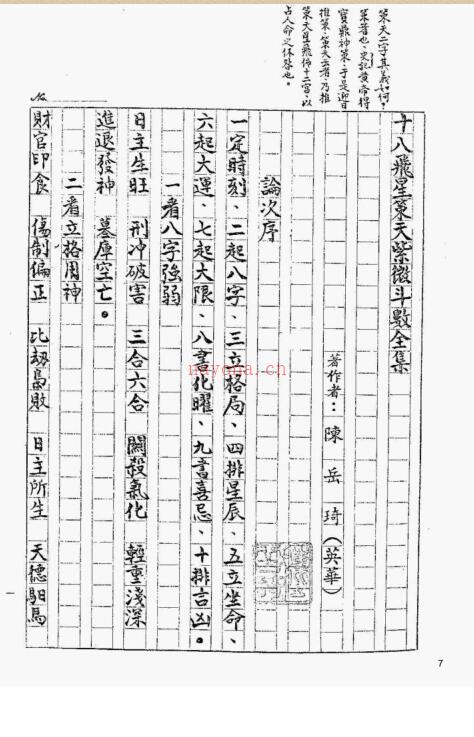 策天二字其義如何,
策者也、史記黃帝得
寶鼎神策、于是迎日
推策、策天云者、乃推
策天星飛佈十二宮、以
占人命之休咎也。
十八飛星策天紫微斗數全集
著作者:陳岳琦(英華)
論次序
一定時刻、二起八字、三立格局、四排星辰、五立坐命、
六起大運、七起大限、八書化曜、九書喜忌、十排吉凶。
一看八字強弱
日主生旺 刑冲破害 三合六合 關殺氣化 輕重淺深
進退發神 墓庫空亡。
二看立格用神
財官印食 傷制偏正 比劫梟敗 日主所生 天德馹馬
№
nayona.cn
7